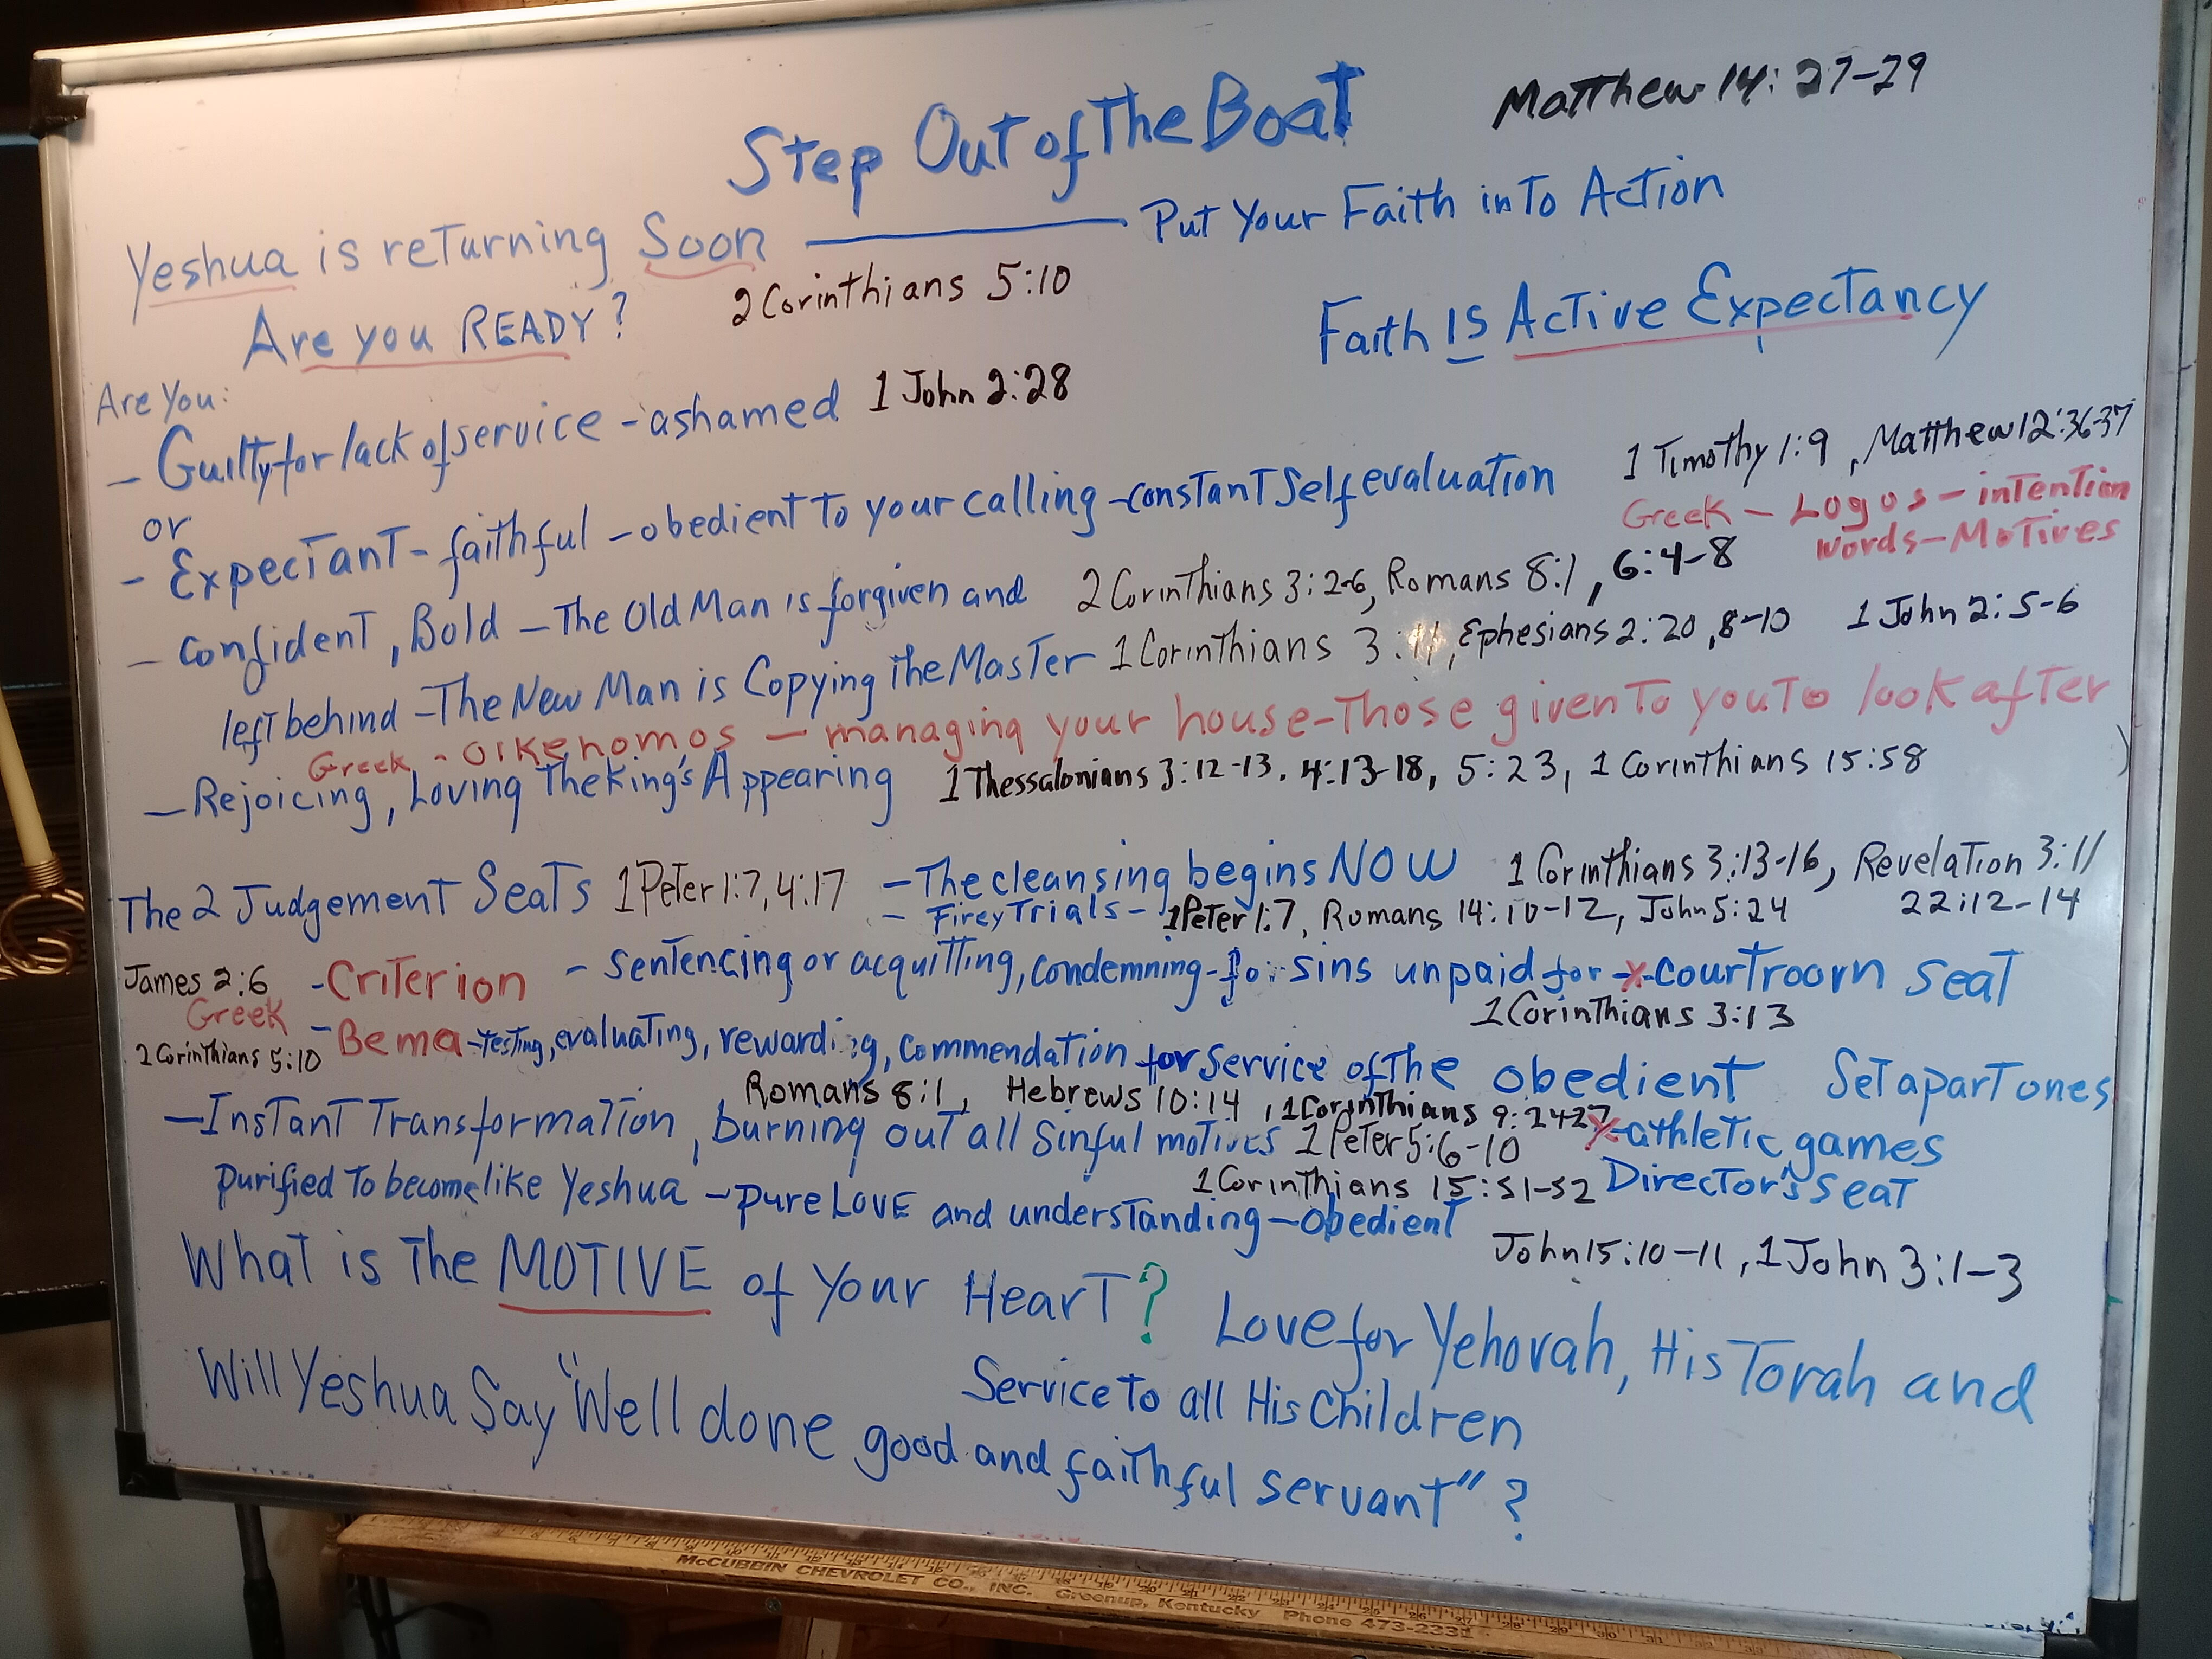 Step Out of The Boat
Matthew 14:27-29
Yeshua is returning Soon — Put Your Faith into Action
Are you READY?
2 Corinthians 5:10
Faith IS Active Expectancy
Are You:
- Guilty for lack of service - ashamed 1 John 2:28
or
- Expectant - faithful - obedient to your calling - constant Self evaluation 1 Timothy 1:9, Matthew 12:36-37
Greek - Logos - intention
words - Motives
- Confident, Bold - The Old Man is forgiven and 2 Corinthians 3:2-6, Romans 8:1, 6:4-8
left behind - The New Man is Copying the Master 1 Corinthians 3:11, Ephesians 2:20, 8-10 1 John 2:5-6
Greek - Oikenomos - managing your house - Those given to you to look after
- Rejoicing, Loving The King's Appearing 1 Thessalonians 3:12-13, 4:13-18, 5:23, 1 Corinthians 15:58
The 2 Judgement Seats 1 Peter 1:7, 4:17 - The cleansing begins NOW 1 Corinthians 3:13-16, Revelation 3:11
- Firey Trials - 1 Peter 1:7, Romans 14:10-12, John 5:24 22:12-14
James 2:6 - Criterion - sentencing or acquitting, condemning - for sins unpaid for -x- courtroom seat
Greek
1 Corinthians 3:13
2 Corinthians 5:10 - Bema - testing, evaluating, rewarding, commendation for service of the obedient Set apart ones
Romans 8:1, Hebrews 10:14, 1 Corinthians 9:24-27
- Instant Transformation, burning out all sinful motives 1 Peter 5:6-10 x-athletic games
purified to become like Yeshua - pure LOVE and understanding - obedient
1 Corinthians 15:51-52 Director's seat
John 15:10-11, 1 John 3:1-3
What is The MOTIVE of Your Heart? Love for Yehovah, His Torah and
Service to all His Children
Will Yeshua Say "Well done good and faithful servant"?
McCUBBIN CHEVROLET CO., INC. Greenup, Kentucky Phone 473-233